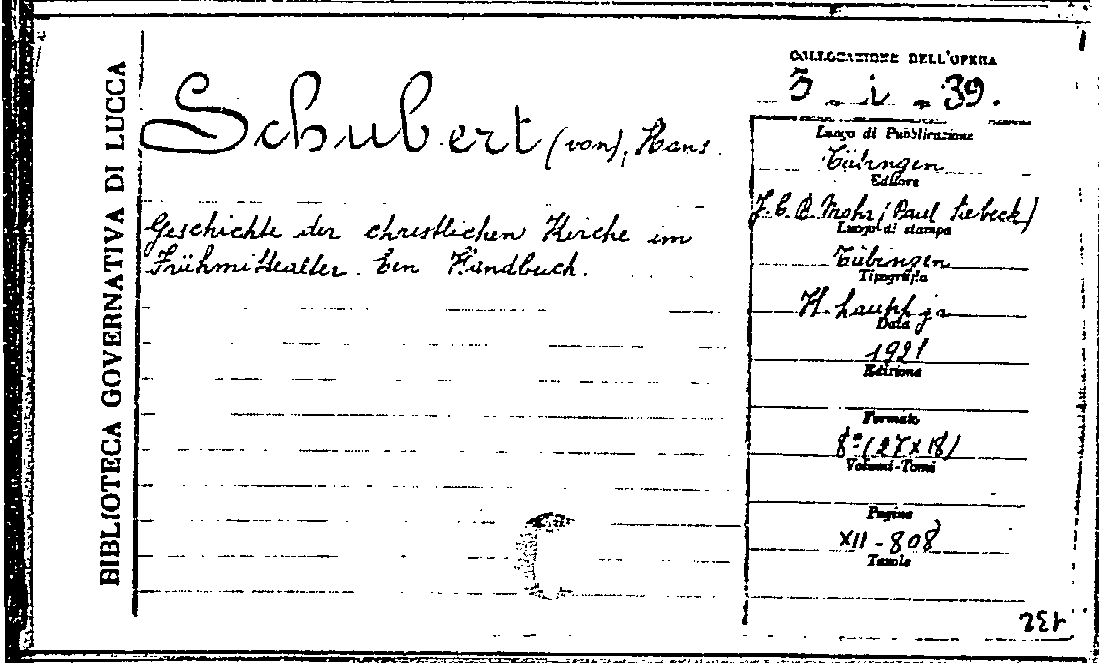 BIBLIOTECA GOVERNATIVA DI LUCCA
Schubert (von), Hans.
Geschichte der christlichen Kirche im
Frühmittealter. Ein Handbuch.
COLLOCAZIONE DELL'OPERA
3 - i - 39.
Luogo di Pubblicazione
Tübingen
Editore
J. C. B. Mohr (Paul Siebeck)
Luogo di stampa
Tübingen
Tipografia
H. Laupp jr
Data
1921
Edizione
Formato
8º (27 x 18)
Volumi-Tomi
Pagine
XII - 808
Tavole